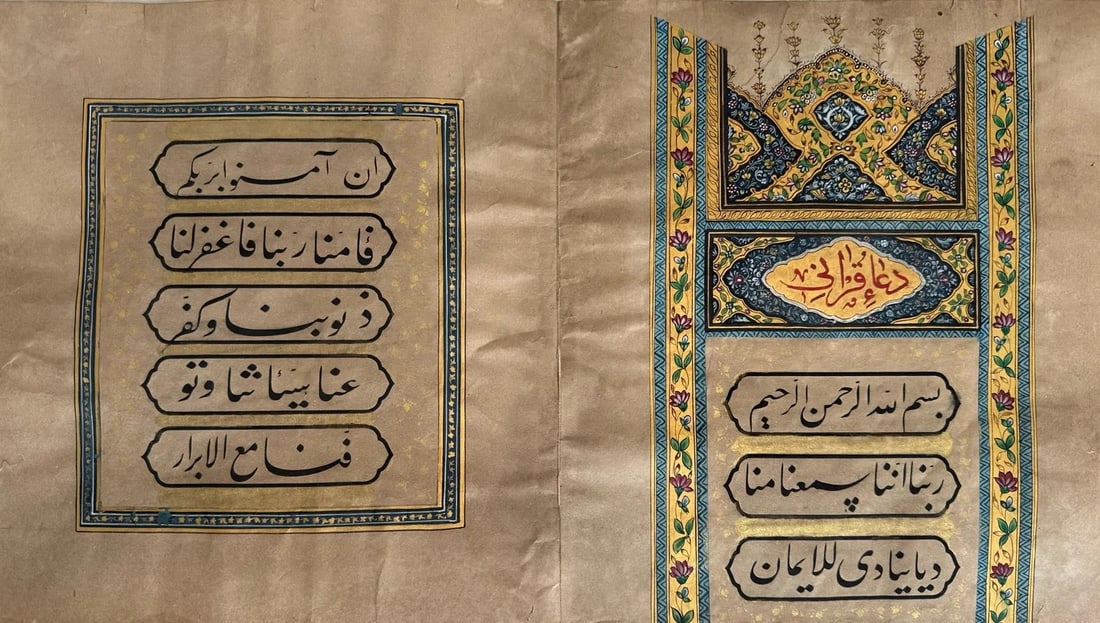 دعاءِ قرآنی
بسم الله الرّحمن الرّحیم
ربّنا انّنا سمعنا منا
دیا ینادی للایمان
ان آمنوا بربّکم
فامنا ربنا فاغفرلنا
ذنوبنا وکفّر
عنا سیئاتنا وتو
فّنا مع الابرار